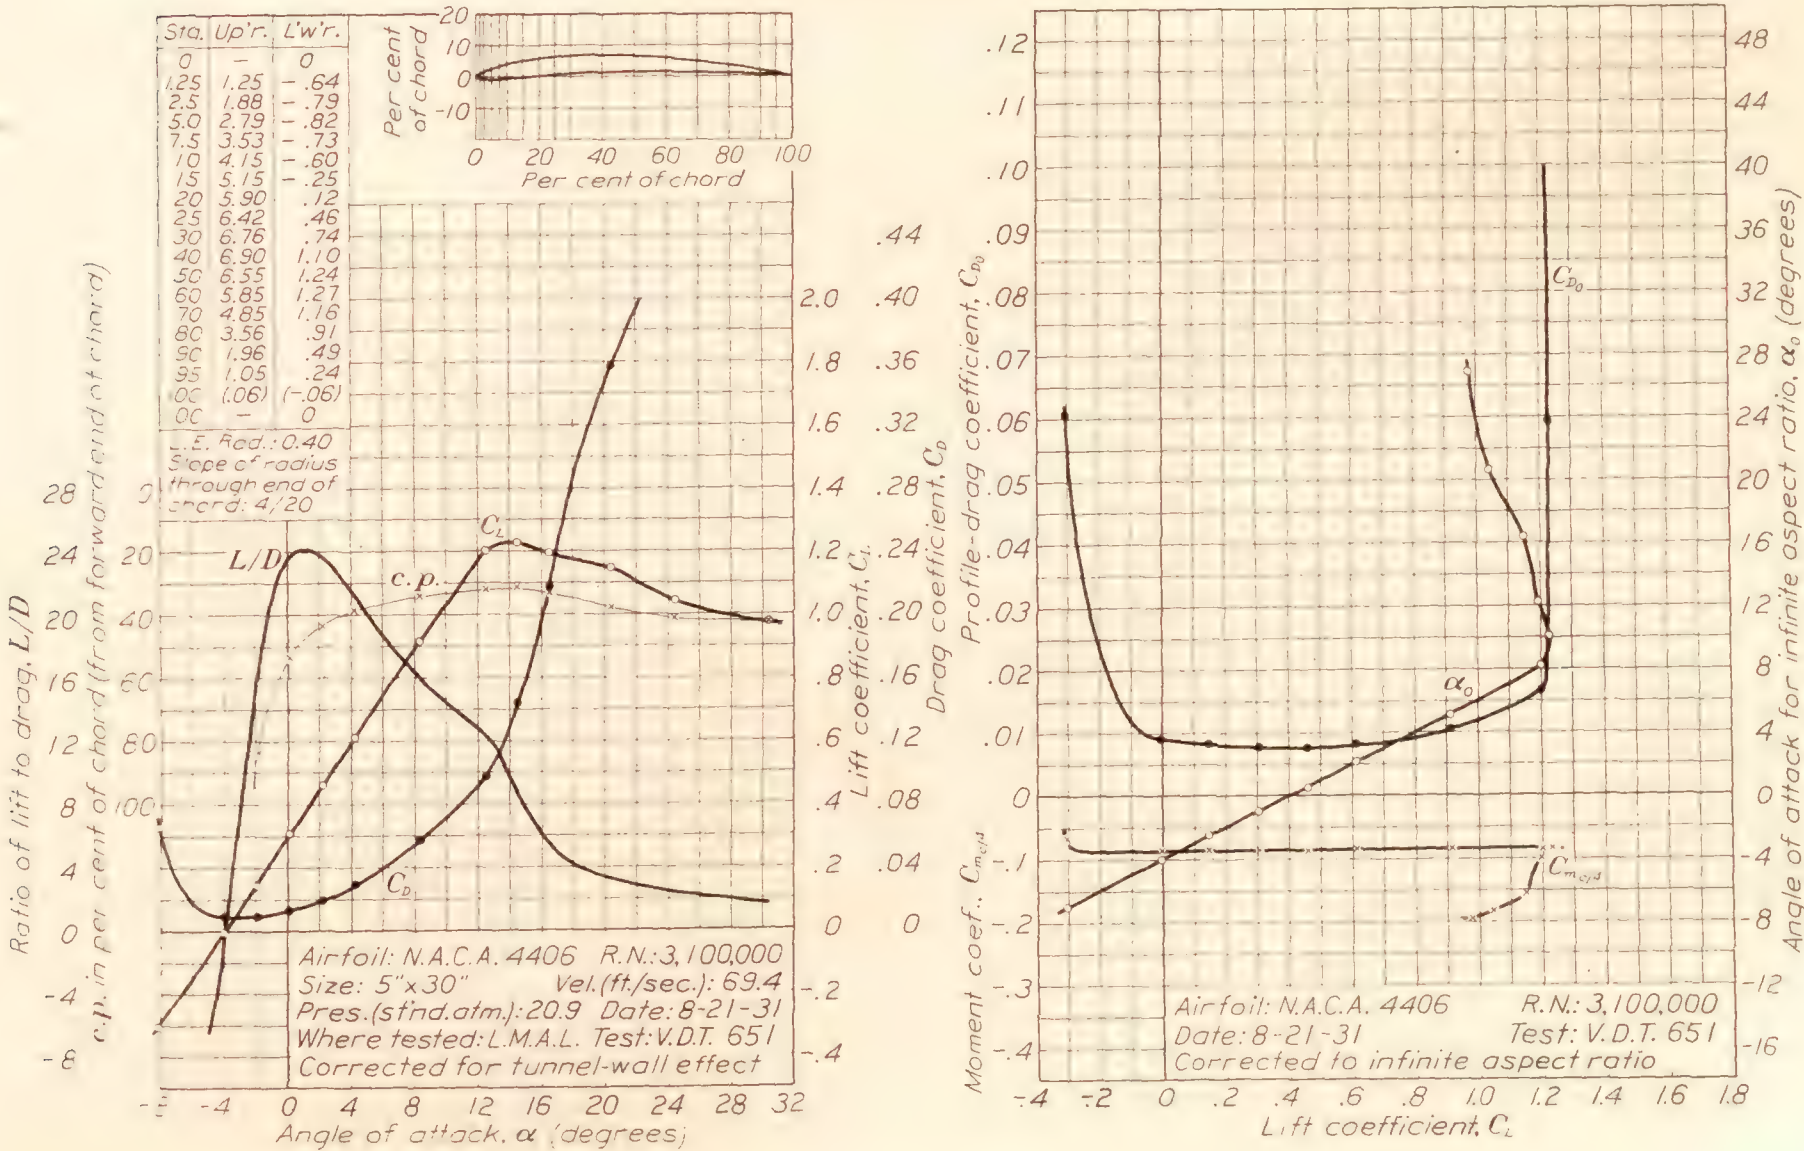 Sta. Up'r. L'w'r.
0 – 0
1.25 1.25 -.64
2.5 1.88 -.79
5.0 2.79 -.82
7.5 3.53 -.73
10 4.15 -.60
15 5.15 -.25
20 5.90 .12
25 6.42 .46
30 6.76 .74
40 6.90 1.10
50 6.55 1.24
60 5.85 1.27
70 4.85 1.16
80 3.56 .91
90 1.96 .49
95 1.05 .24
00 (.06) (-.06)
00 – 0
L.E. Rad.: 0.40
Slope of radius
through end of
chord: 4/20
20
10
0
-10
Per cent
of chord
0 20 40 60 80 100
Per cent of chord
Ratio of lift to drag, L/D
28
24
20
16
12
8
4
0
-4
-8
c.p. in per cent of chord (from forward end of chord)
0
20
40
60
80
100
L/D
C_L
c.p.
C_D
2.0
1.8
1.6
1.4
1.2
1.0
.8
.6
.4
.2
0
-.2
-.4
Lift coefficient, C_L
.44
.40
.36
.32
.28
.24
.20
.16
.12
.08
.04
0
Drag coefficient, C_D
Airfoil: N.A.C.A. 4406 R.N.: 3,100,000
Size: 5"x30" Vel.(ft./sec.): 69.4
Pres.(st'nd.atm.): 20.9 Date: 8-21-31
Where tested: L.M.A.L. Test: V.D.T. 651
Corrected for tunnel-wall effect
-4 0 4 8 12 16 20 24 28 32
Angle of attack, α (degrees)
Profile-drag coefficient, C_D0
.12
.11
.10
.09
.08
.07
.06
.05
.04
.03
.02
.01
0
Moment coef., C_mc/4
-.1
-.2
-.3
-.4
C_D0
α_0
C_mc/4
48
44
40
36
32
28
24
20
16
12
8
4
0
-4
-8
-12
-16
Angle of attack for infinite aspect ratio, α_0 (degrees)
Airfoil: N.A.C.A. 4406 R.N.: 3,100,000
Date: 8-21-31 Test: V.D.T. 651
Corrected to infinite aspect ratio
-.4 -.2 0 .2 .4 .6 .8 1.0 1.2 1.4 1.6 1.8
Lift coefficient, C_L